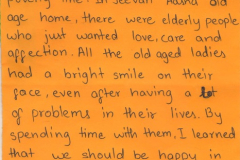 poverty line. In Jeevan Aasha old
age home, there were elderly people
who just wanted love, care and
affection. All the old aged ladies
had a bright smile on their
face, even after having a lot
of problems in their lives. By
spending time with them, I learned
that we should be happy in